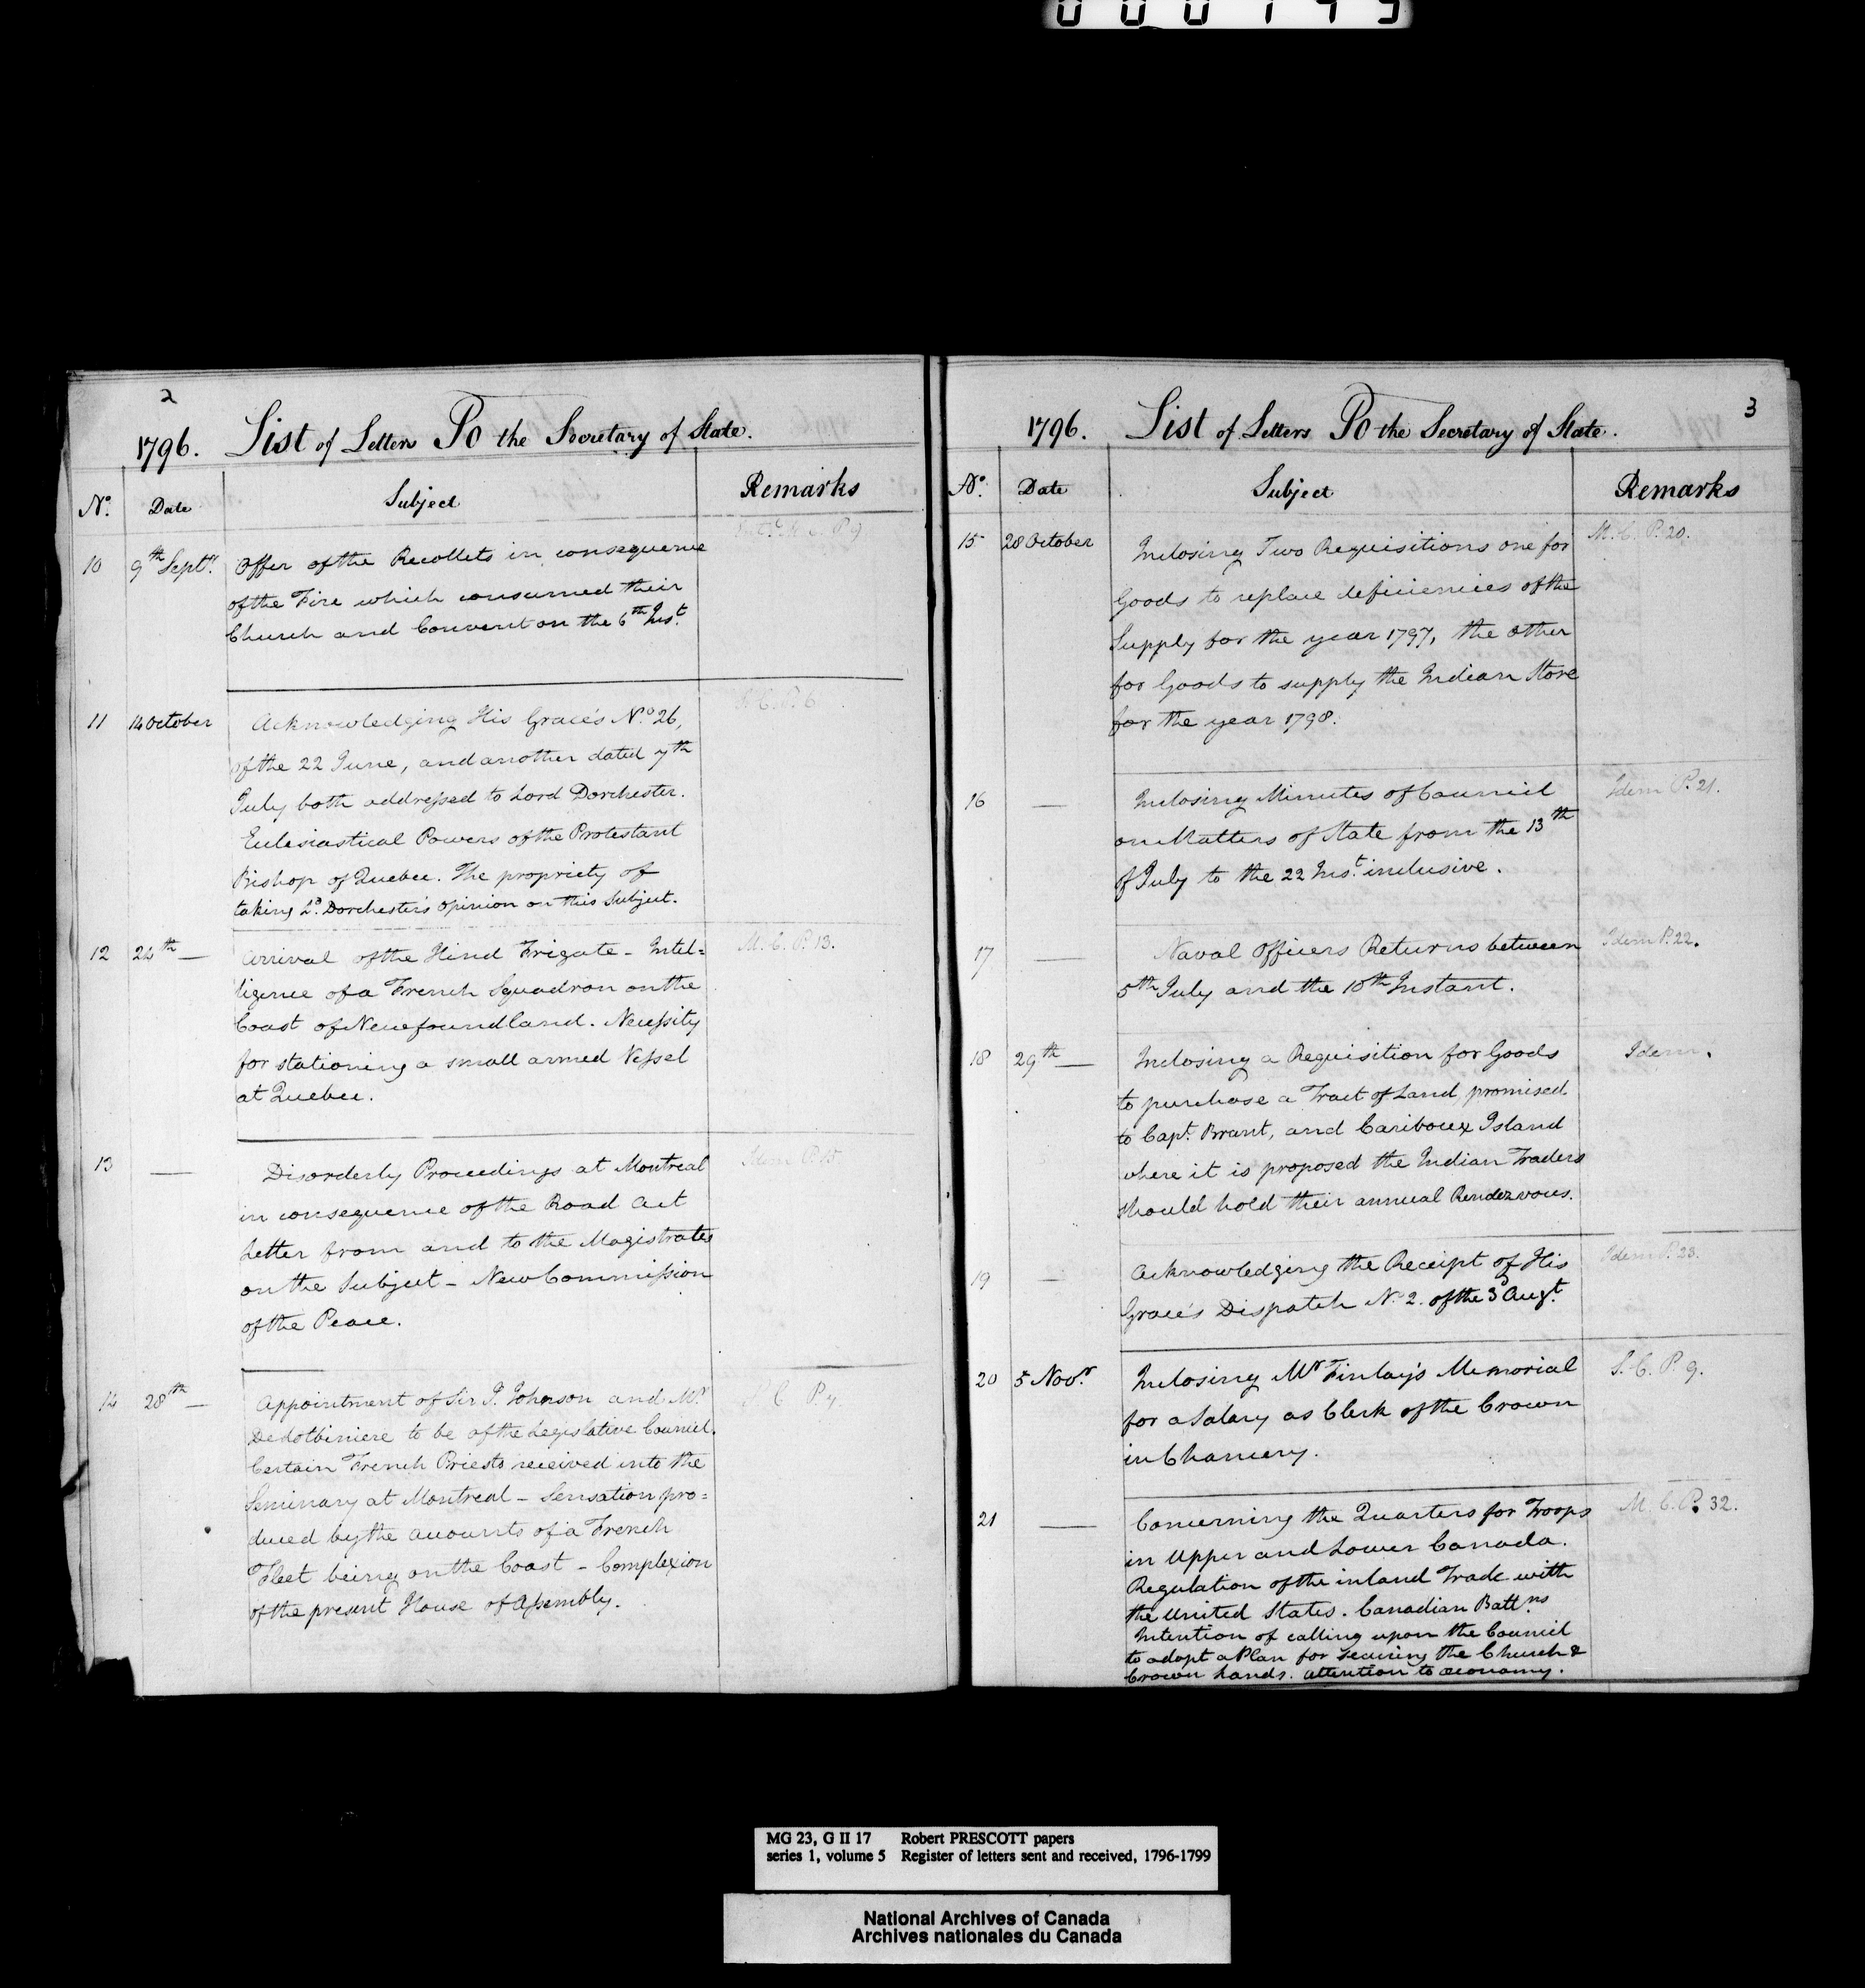 2
1796. List of Letters To the Secretary of State.
No. Date Subject Remarks
10 9th Septr. Offer of the Recollets in consequence P 9
of the Fire which consumed their
Church and Convent on the 6th Inst.
11 14 October Acknowledging His Grace's No. 26, P. 6
of the 22 June, and another dated 7th
July both addressed to Lord Dorchester.
Eclesiastical Powers of the Protestant
Bishop of Quebec. The propriety of
taking Ld. Dorchester's Opinion on this Subject.
12 24th — Arrival of the Hind Frigate - Intel= M. C. P. 13.
ligence of a French Squadron on the
Coast of Newfoundland. Necessity
for stationing a small armed Vessel
at Quebec.
13 — Disorderly Proceedings at Montreal Idem P. 15
in consequence of the Road Act
Letter from and to the Magistrates
on the Subject - New Commission
of the Peace.
14 28th — Appointment of Sir J. Johnson and Mr. C P 7
DeLotbiniere to be of the Legislative Council.
Certain French Priests received into the
Seminary at Montreal - Sensation pro=
duced by the accounts of a French
Fleet being on the Coast - Complexion
of the present House of Assembly.
3
1796. List of Letters To the Secretary of State.
No. Date Subject Remarks
15 28 October Inclosing Two Requisitions one for M. C. P. 20.
Goods to replace deficiencies of the
Supply for the year 1797, the other
for Goods to supply the Indian Store
for the year 1798.
16 — Inclosing Minutes of Council Idem P. 21.
on Matters of State from the 13th
of July to the 22 Inst. inclusive.
17 — Naval Officers Returns between Idem P. 22.
5th July and the 10th Instant.
18 29th — Inclosing a Requisition for Goods Idem.
to purchase a Tract of Land, promised
to Capt. Brant, and Cariboux Island
where it is proposed the Indian Traders
should hold their annual Rendezvous.
19 — Acknowledging the Receipt of His Idem P. 23.
Grace's Dispatch No. 2. of the 3d Augt.
20 5 Novr. Inclosing Mr Finlay's Memorial S. C. P. 9.
for a Salary as Clerk of the Crown
in Chancery.
21 — Concerning the Quarters for Troops M. C. P. 32.
in Upper and Lower Canada.
Regulation of the inland Trade with
the United States. Canadian Battns.
Intention of calling upon the Council
to adopt a Plan for securing the Church &
Crown Lands. Attention to œconomy.
MG 23, G II 17 Robert PRESCOTT papers
series 1, volume 5 Register of letters sent and received, 1796-1799
National Archives of Canada
Archives nationales du Canada